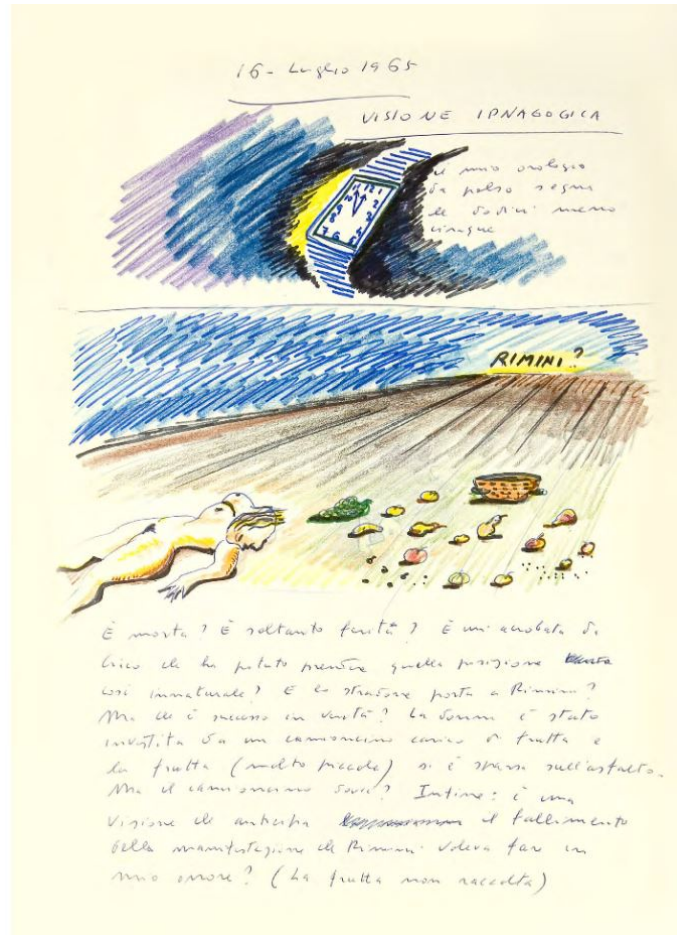 16 - Luglio 1965
VISIONE IPNAGOGICA
il mio orologio
da polso segna
le dodici meno
cinque
12
1
2
3
4
5
6
7
8
9
RIMINI?
È morta? È soltanto ferita? È un'acrobata di
circo che ha potuto prendere quella posizione
così innaturale? E lo stradone porta a Rimini?
Ma che è successo in verità? La donna è stato
investita da un camioncino carico di frutta e
la frutta (molto piccola) si è sparsa sull'asfalto.
Ma il camioncino dov'è? Infine: è una
visione che anticipa il fallimento
della manifestazione che Rimini voleva fare in
mio onore? (La frutta non raccolta)